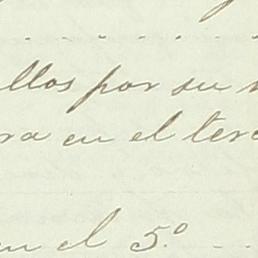 ellos por su
ra en el terc
en el 5.º